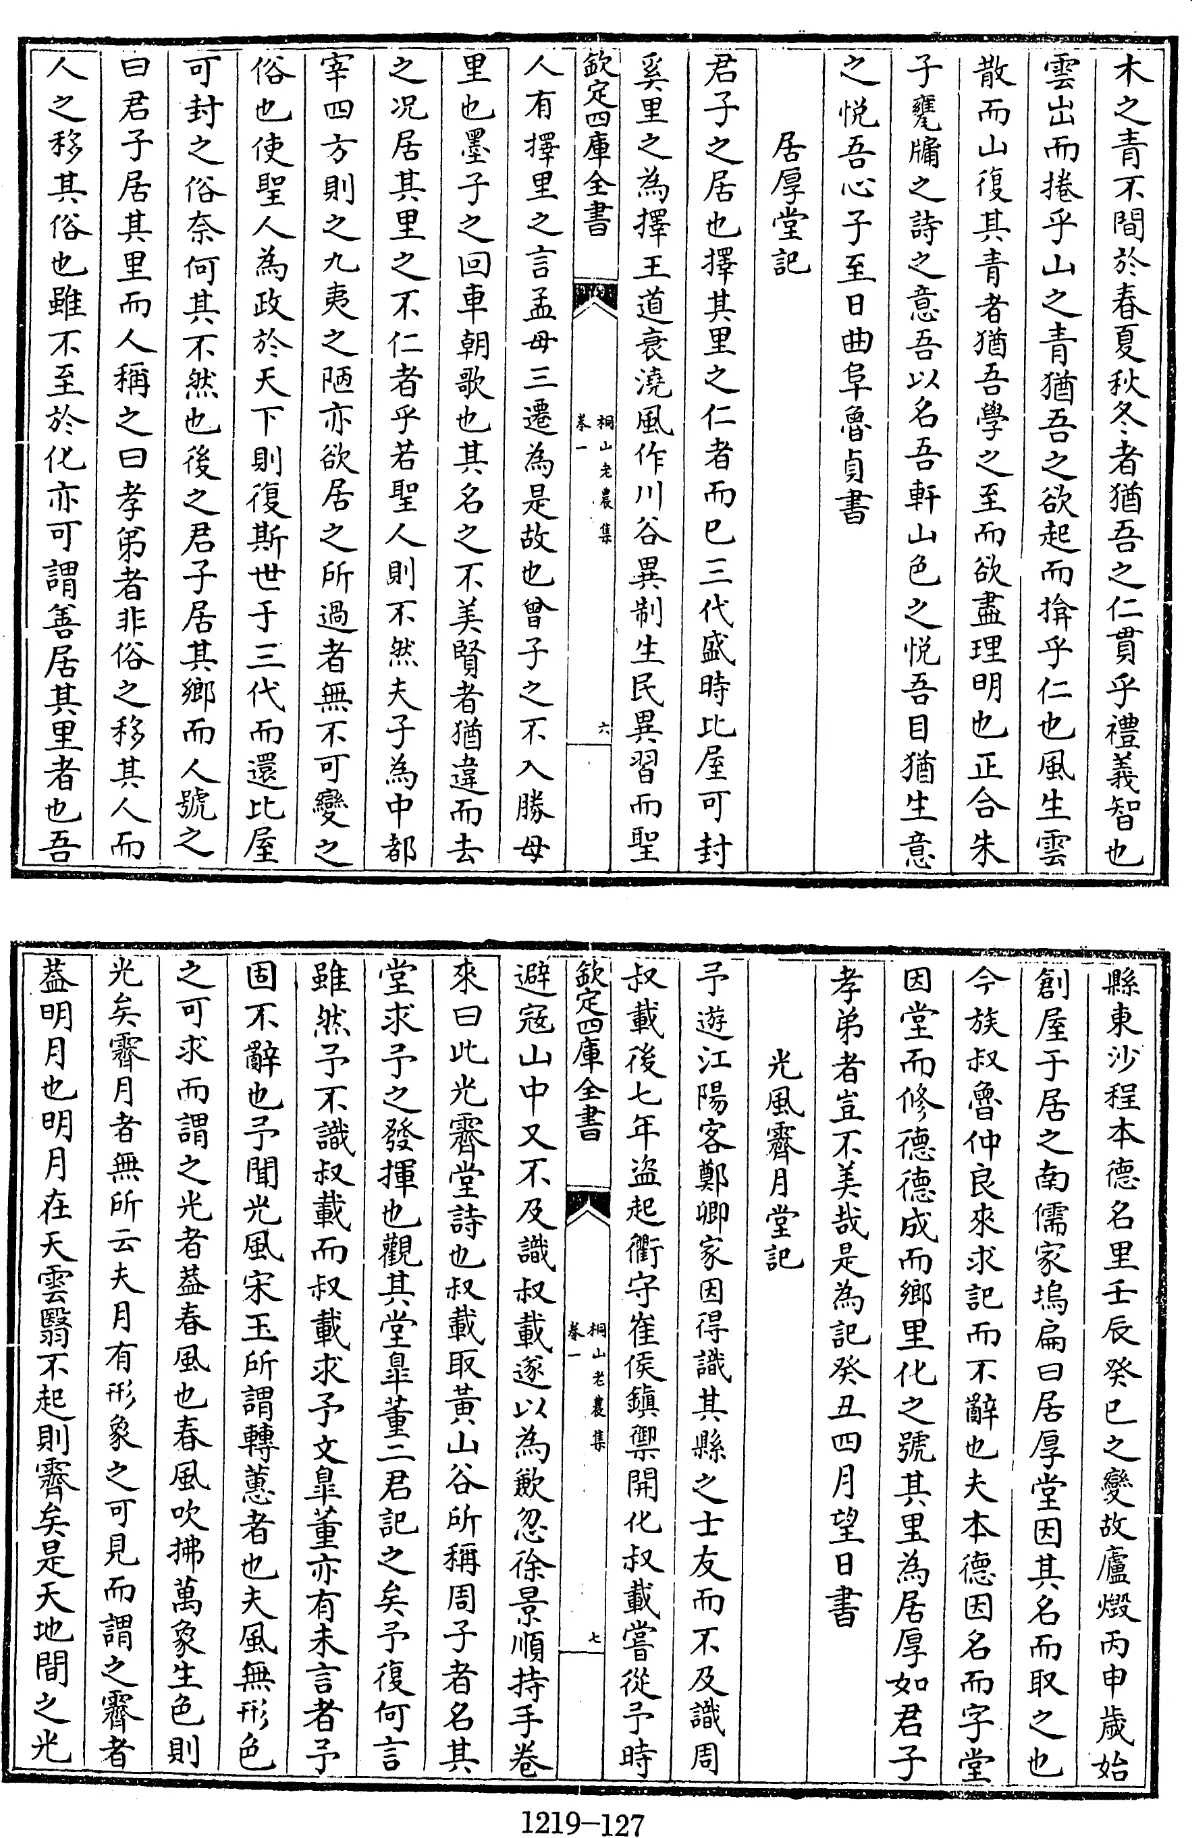 木之青不間於春夏秋冬者猶吾之仁貫乎禮義智也
雲出而捲乎山之青猶吾之欲起而揜乎仁也風生雲
散而山復其青者猶吾學之至而欲盡理明也正合朱
子甕牖之詩之意吾以名吾軒山色之悅吾目猶生意
之悅吾心子至日曲阜魯貞書
居厚堂記
君子之居也擇其里之仁者而已三代盛時比屋可封
奚里之為擇王道衰澆風作川谷異制生民異習而聖
欽定四庫全書
桐山老農集
卷一
六
人有擇里之言孟母三遷為是故也曾子之不入勝母
里也墨子之回車朝歌也其名之不美賢者猶違而去
之况居其里之不仁者乎若聖人則不然夫子為中都
宰四方則之九夷之陋亦欲居之所過者無不可變之
俗也使聖人為政於天下則復斯世于三代而還比屋
可封之俗奈何其不然也後之君子居其鄉而人號之
曰君子居其里而人稱之曰孝弟者非俗之移其人而
人之移其俗也雖不至於化亦可謂善居其里者也吾
縣東沙程本德名里壬辰癸巳之變故廬燬丙申歲始
創屋于居之南儒家塢扁曰居厚堂因其名而取之也
今族叔魯仲良來求記而不辭也夫本德因名而字堂
因堂而修德德成而鄉里化之號其里為居厚如君子
孝弟者豈不美哉是為記癸丑四月望日書
光風霽月堂記
予遊江陽客鄭卿家因得識其縣之士友而不及識周
叔載後七年盜起衢守崔侯鎮禦開化叔載嘗從予時
欽定四庫全書
桐山老農集
卷一
七
避寇山中又不及識叔載遂以為歉忽徐景順持手卷
來曰此光霽堂詩也叔載取黃山谷所稱周子者名其
堂求予之發揮也觀其堂皐董二君記之矣予復何言
雖然予不識叔載而叔載求予文皐董亦有未言者予
固不辭也予聞光風宋玉所謂轉蕙者也夫風無形色
之可求而謂之光者葢春風也春風吹拂萬象生色則
光矣霽月者無所云夫月有形象之可見而謂之霽者
葢明月也明月在天雲翳不起則霽矣是天地間之光
1219-127